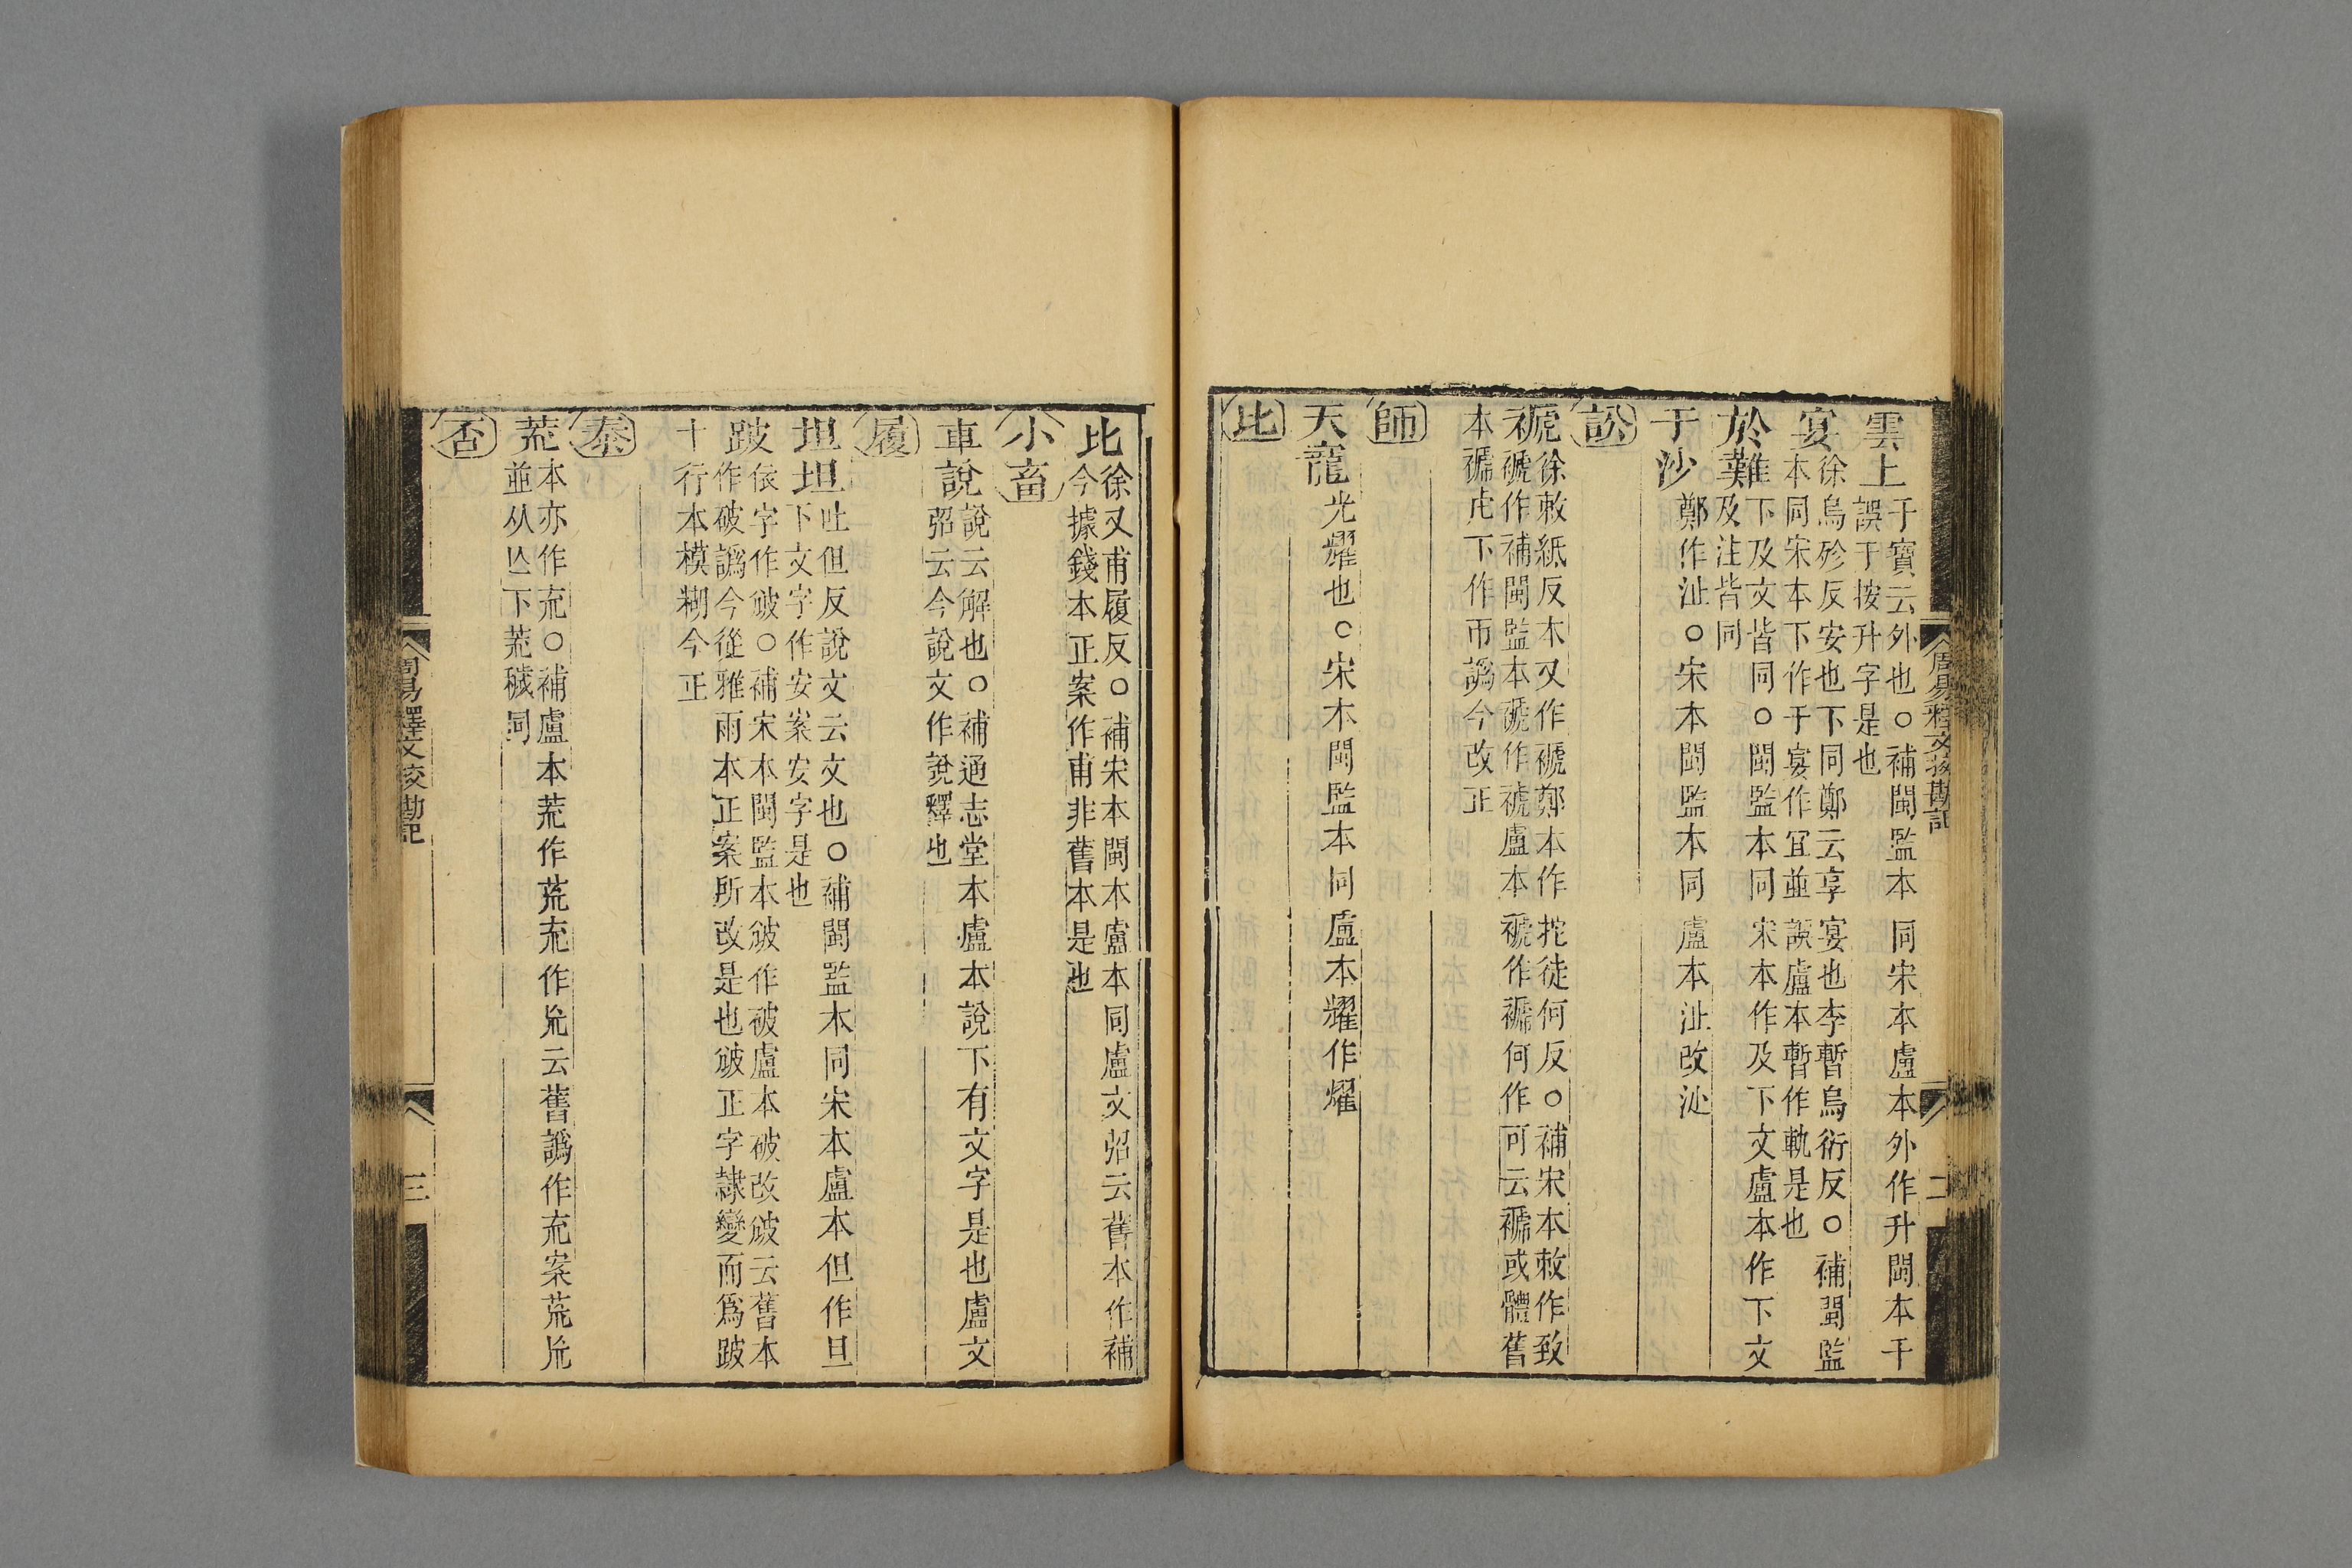 雲上
于寶云外也○補閩監本同宋本盧本外作升閩本干
誤于按升字是也
宴
徐烏殄反安也下同鄭云享宴也李暫烏衍反○補閩監
本同宋本下作于宴作宜並誤盧本暫作軌是也
於難
難下及文皆同○閩監本同宋本作及下文盧本作下文
及注皆同
于沙
鄭作沚○宋本閩監本同盧本沚改沚
訟
褫
徐敕紙反本又作褫鄭本作拕徒何反○補宋本敕作致
褫作補閩監本褫作褫盧本褫作褫何作可云褫或體舊
本褫虒下作帀譌今改正
師
天寵
光燿也○宋本閩監本同盧本燿作耀
比
周易釋文挍勘記
二
比
徐又甫履反○補宋本閩本盧本同盧文弨云舊本作補
今據錢本正案作甫非舊本是也
小畜
車說
說云解也○補通志堂本盧本說下有文字是也盧文
弨云今說文作說釋也
履
坦坦
吐但反說文云文也○補閩監本同宋本盧本但作旦
下文字作安案安字是也
跛
依字作㢰○補宋本閩監本㢰作破盧本破改㢰云舊本
作破譌今從雅雨本正案所改是也㢰正字隸變而爲跛
十行本模糊今正
泰
荒
本亦作㐬○補盧本荒作㡃㐬作巟云舊譌作㐬案荒巟
並从亾下荒穢同
否
周易釋文挍勘記
三